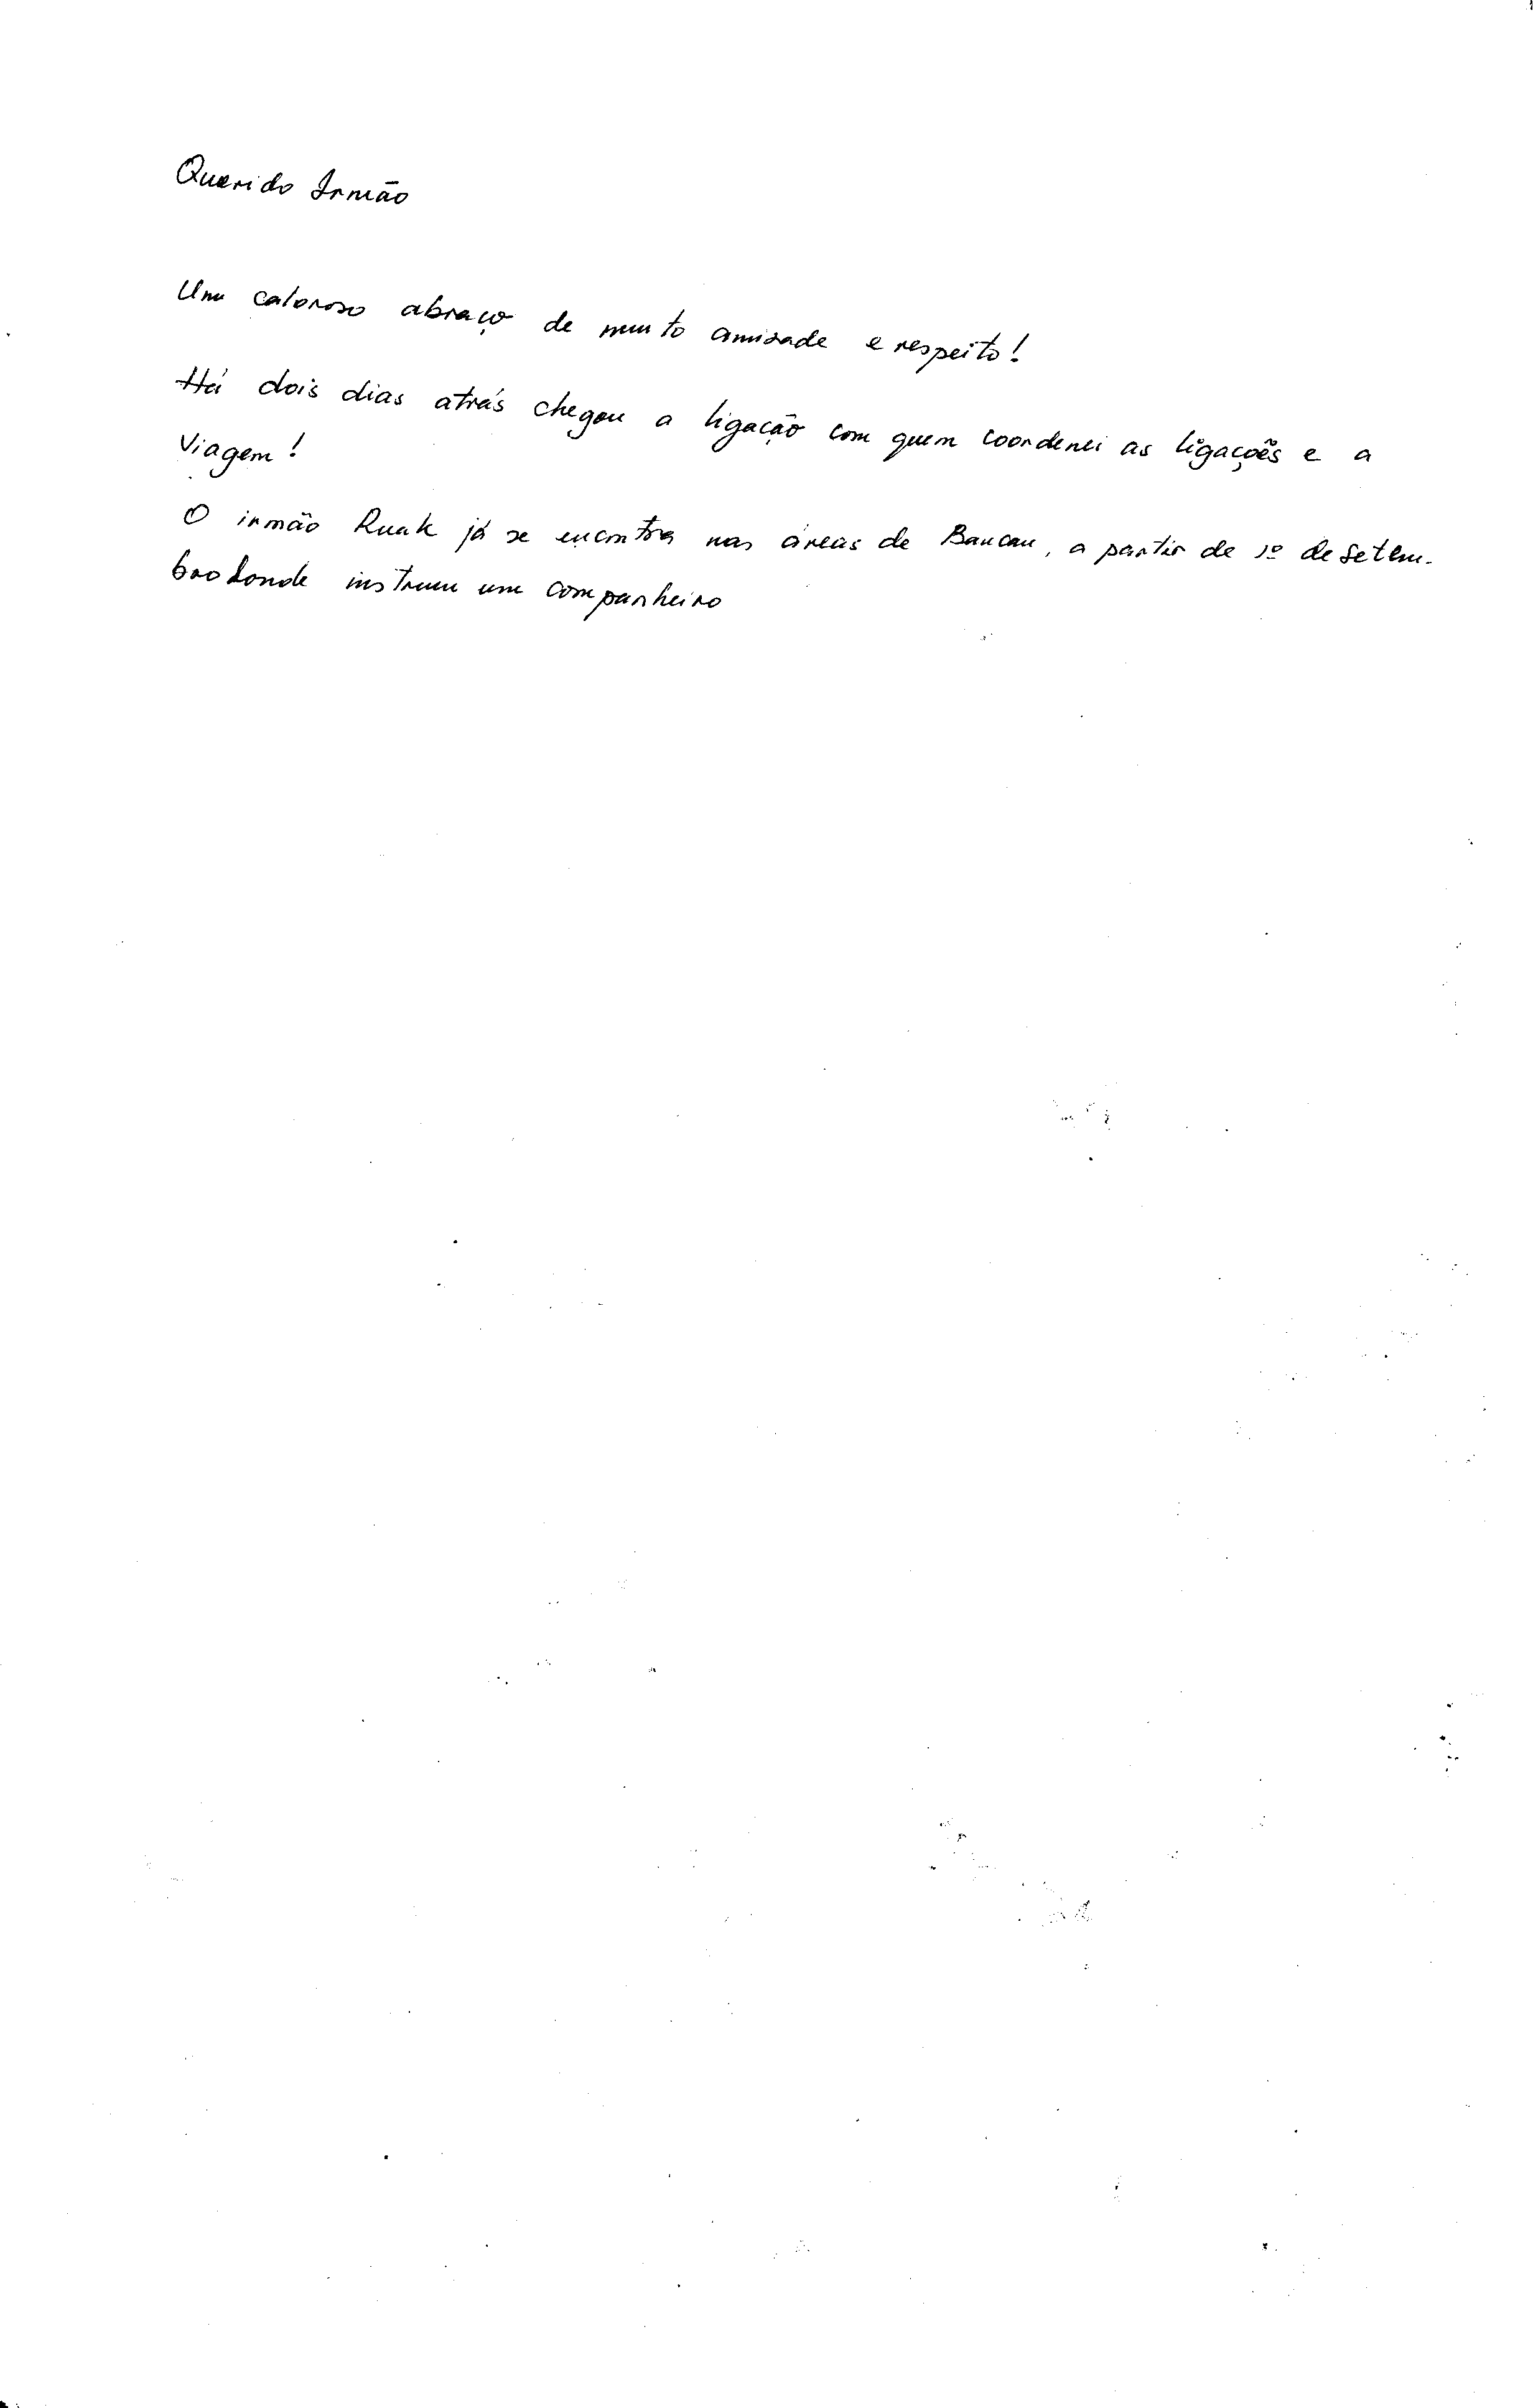 Querido Irmão
Um caloroso abraço de muito amizade e respeito!
Há dois dias atrás chegou a ligação com quem coordenei as ligações e a
viagem!
O irmão Ruak já se encontra nas áreas de Baucau, a partir de 1º de Setem-
bro donde instruiu um companheiro